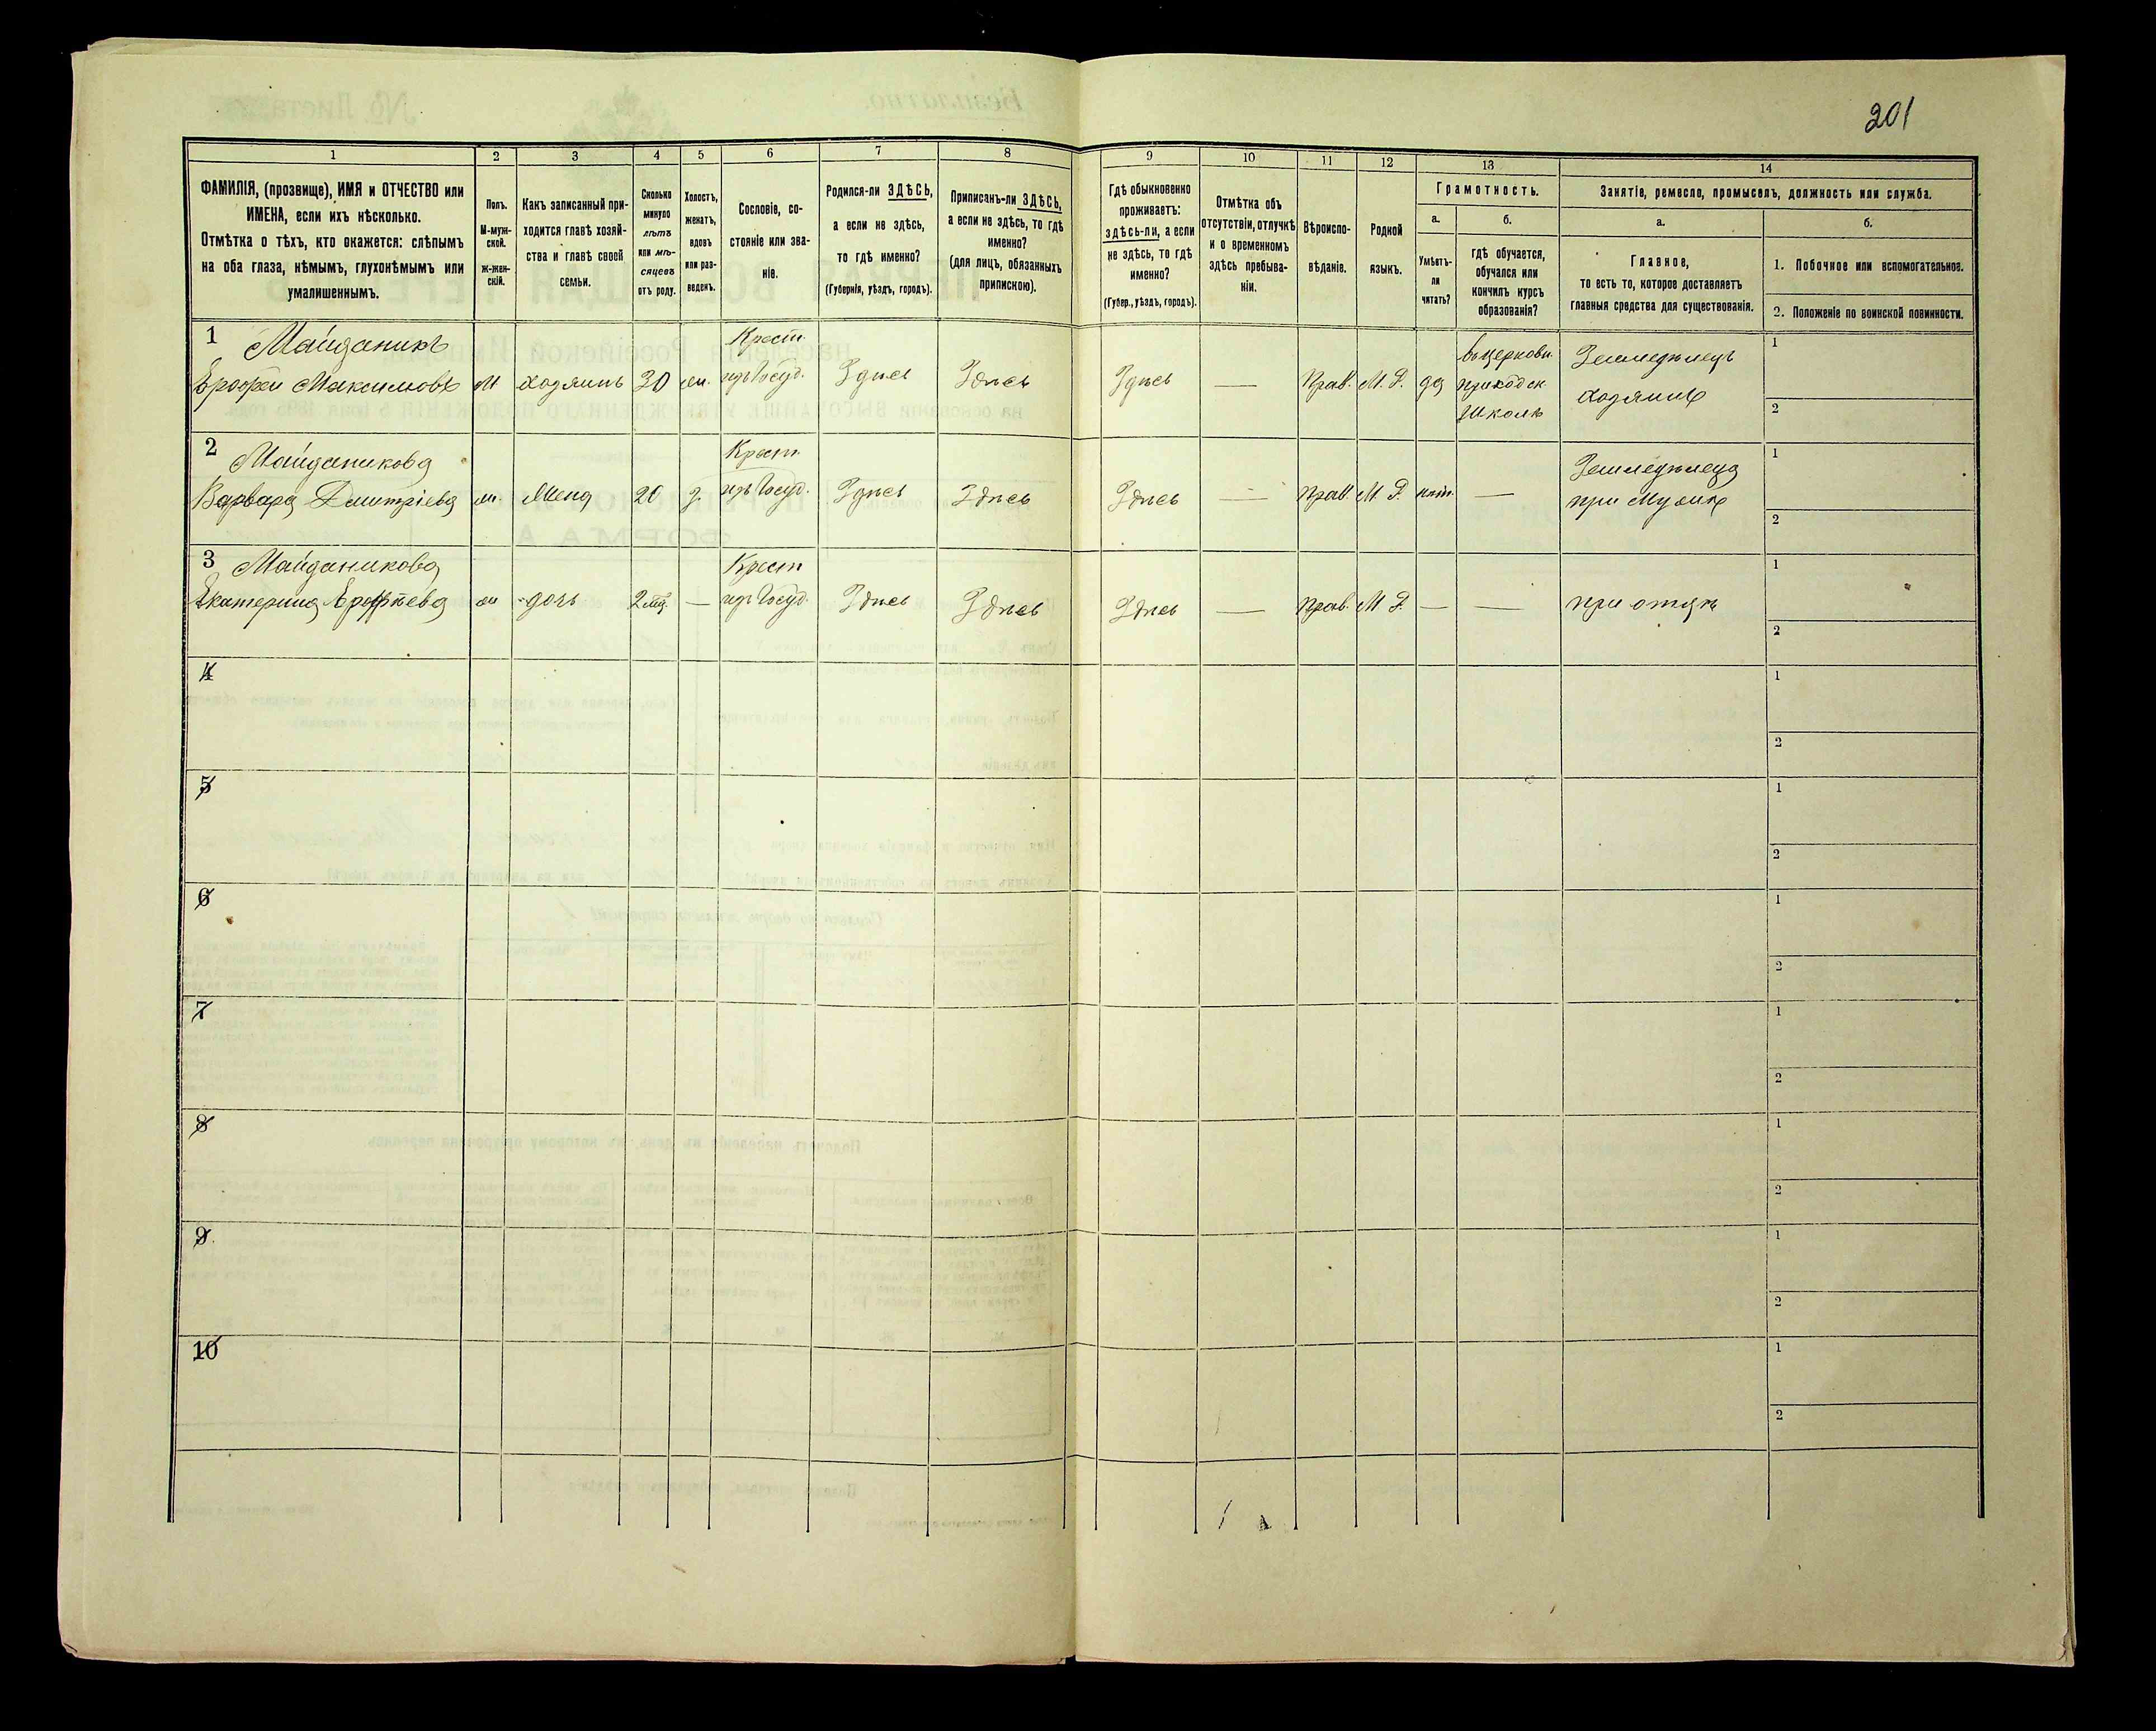 201
1 2 3 4 5 6 7 8 9 10 11 12 13 14
ФАМИЛІЯ, (прозвище), ИМЯ и ОТЧЕСТВО или
ИМЕНА, если ихъ нѣсколько.
Отмѣтка о тѣхъ, кто окажется: слѣпымъ
на оба глаза, нѣмымъ, глухонѣмымъ или
умалишеннымъ.
Полъ.
М-муж-
ской.
ж-жен-
скій.
Какъ записанный при-
ходится главѣ хозяй-
ства и главѣ своей
семьи.
Сколько
минуло
лѣтъ
или мѣ-
сяцевъ
отъ роду.
Холостъ,
женатъ,
вдовъ
или раз-
веденъ.
Сословіе, со-
стояніе или зва-
ніе.
Родился-ли ЗДѢСЬ,
а если не здѣсь,
то гдѣ именно?
(Губернія, уѣздъ, городъ).
Приписанъ-ли ЗДѢСЬ,
а если не здѣсь, то гдѣ
именно?
(для лицъ, обязанныхъ
припискою).
Гдѣ обыкновенно
проживаетъ:
здѣсь-ли, а если
не здѣсь, то гдѣ
именно?
(Губер., уѣздъ, городъ).
Отмѣтка объ
отсутствіи, отлучкѣ
и о временномъ
здѣсь пребыва-
ніи.
Вѣроиспо-
вѣданіе.
Родной
языкъ.
Грамотность.
а.
Умѣетъ-
ли
читать?
б.
гдѣ обучается,
обучался или
кончилъ курсъ
образованія?
Занятіе, ремесло, промыселъ, должность или служба.
а.
Главное,
то есть то, которое доставляетъ
главныя средства для существованія.
б.
1. Побочное или вспомогательное.
2. Положеніе по воинской повинности.
1 Майданикъ Крест. въ церковн. Земледѣлецъ 1
Ерофей Максимовъ М хозяинъ 20 жн. изъ Госуд. Здѣсь Здѣсь Здѣсь — Прав. М. Р. да приходск. хозяинъ
школѣ 2
2 Майданикова Крест. Земледѣлецъ 1
Варвара Дмитріева ж. Жена 20 з. изъ Госуд. Здѣсь Здѣсь Здѣсь — Прав. М. Р. нѣт. — при мужѣ
2
3 Майданикова Крест 1
Екатерина Ерофѣева ж дочь — изъ Госуд. Здѣсь Здѣсь Здѣсь — Прав. М Р. — — при отцѣ
2
4 1
2
5 1
2
6 1
2
7 1
2
8 1
2
9 1
2
10 1
2